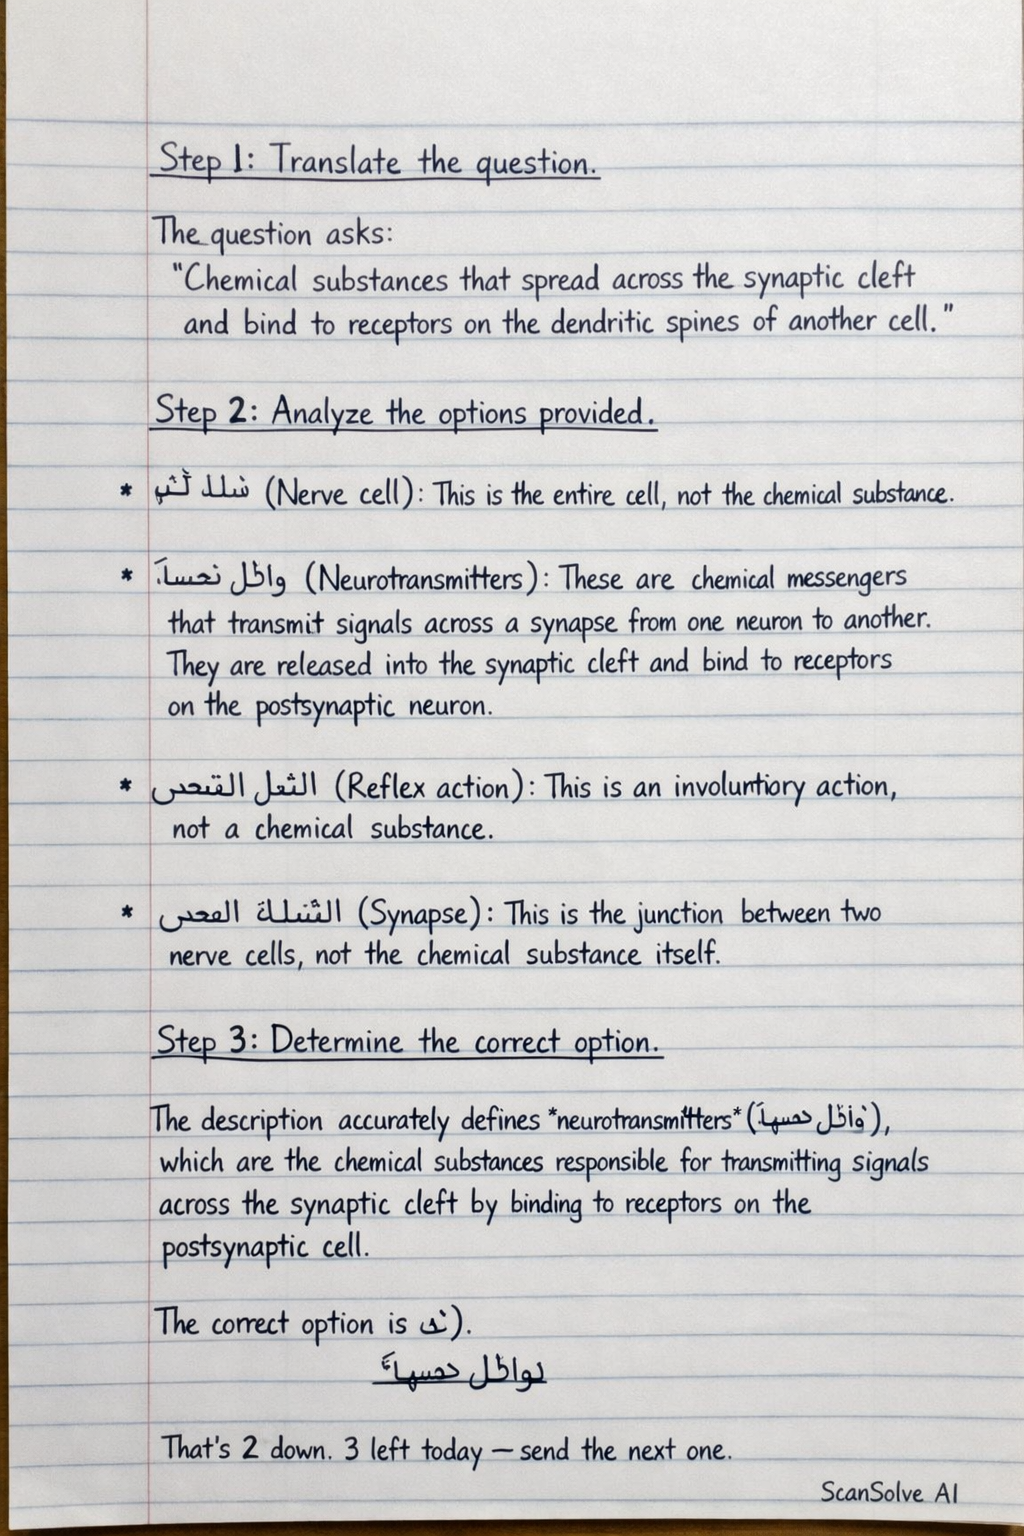 Step 1: Translate the question.
The question asks:
"Chemical substances that spread across the synaptic cleft
and bind to receptors on the dendritic spines of another cell."
Step 2: Analyze the options provided.
* (Nerve cell): This is the entire cell, not the chemical substance.
* (Neurotransmitters): These are chemical messengers
that transmit signals across a synapse from one neuron to another.
They are released into the synaptic cleft and bind to receptors
on the postsynaptic neuron.
* (Reflex action): This is an involuntiory action,
not a chemical substance.
* (Synapse): This is the junction between two
nerve cells, not the chemical substance itself.
Step 3: Determine the correct option.
The description accurately defines *neurotransmitters* (),
which are the chemical substances responsible for transmitting signals
across the synaptic cleft by binding to receptors on the
postsynaptic cell.
The correct option is ).
That's 2 down. 3 left today — send the next one.
ScanSolve AI